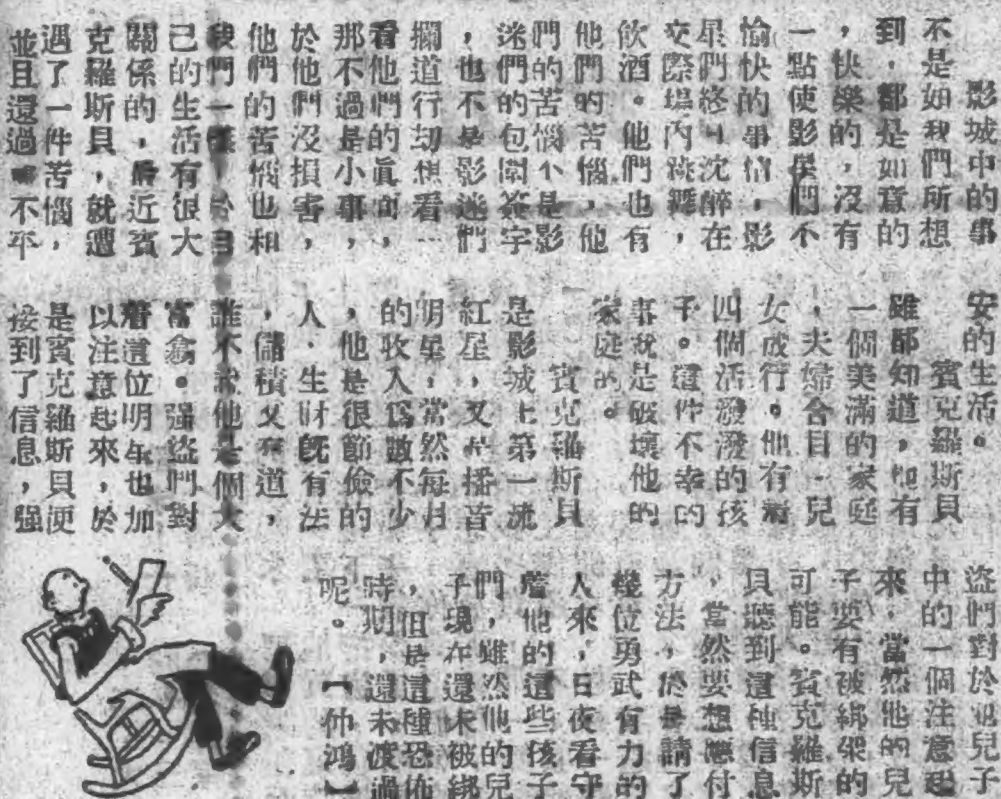 影城中的事
不是如我們所想
到，都是如意的
，快樂的，沒有
一點使影星們不
愉快的事情，影
星們終日沈醉在
交際場內跳舞，
飲酒。他們也有
他們的苦惱，他
們的苦惱不是影
迷們的包圍簽字
，也不是影迷們
攔道行刧想看一
看他們的真面，
那不過是小事，
於他們沒損害，
他們的苦惱也和
我們一樣，於自
己的生活有很大
關係的，最近賓
克羅斯貝，就遭
遇了一件苦惱，
並且還過 不平
安的生活。
賓克羅斯貝
雖都知道，他有
一個美滿的家庭
，夫婦合目，兒
女成行。他有着
四個活潑潑的孩
子。這件不幸的
事就是破壞他的
家庭的。
賓克羅斯貝
是影城上第一流
紅星，又是播音
明星，當然每月
的收入爲數不少
，他是很節儉的
人，生財旣有法
，儲積又有道，
誰不說他是個大
富翁。强盜們對
着這位明星也加
以注意起來，於
是賓克羅斯貝便
接到了信息，强
盜們對於他兒子
中的一個注意起
來，當然他的兒
子要有被綁架的
可能。賓克羅斯
貝聽到這種信息
，當然要想應付
方法，於是請了
幾位勇武有力的
人來，日夜看守
着他的這些孩子
們，雖然他的兒
子現在還未被綁
，但是這種恐怖
時期，還未渡過
呢。
【仲鴻】